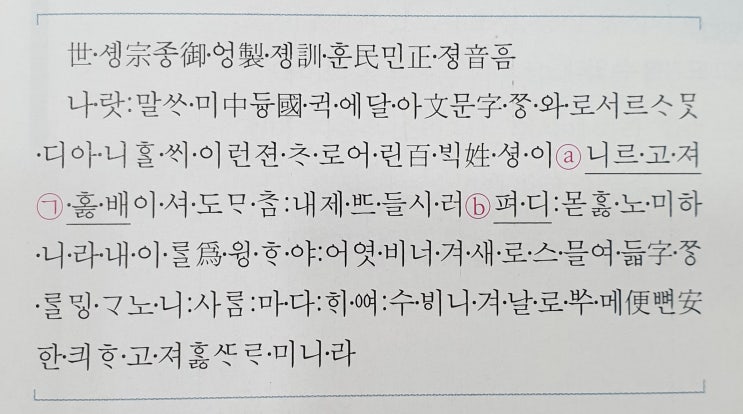 世·솅宗종御·엉製·졩訓·훈民민正·졍音ᅙᅳᆷ
나·랏:말ᄊᆞ·미中듕國·귁·에달·아文문字·ᄍᆞᆼ·와·로서르ᄉᆞᄆᆞᆺ
·디아·니ᄒᆞᆯ·ᄊᆡ·이런젼·ᄎᆞ·로어·린百·ᄇᆡᆨ姓·셩·이ⓐ니르·고·져
㉠·호ᇙ·배이·셔·도ᄆᆞ·ᄎᆞᆷ:내제·ᄠᅳ·들시·러ⓑ펴·디:몯ᄒᆞᇙ·노·미하
·니·라·내·이·ᄅᆞᆯ爲·윙·ᄒᆞ·야:어엿·비너·겨·새·로·스·믈여·듧字·ᄍᆞᆼ
·ᄅᆞᆯᄆᆡᇰ·ᄀᆞ노·니:사ᄅᆞᆷ:마·다:ᄒᆡ·ᅇᅧ:수·ᄫᅵ니·겨·날·로·ᄡᅮ·메便뼌安
한·킈ᄒᆞ·고·져ᄒᆞᇙᄯᆞᄅᆞ·미니·라